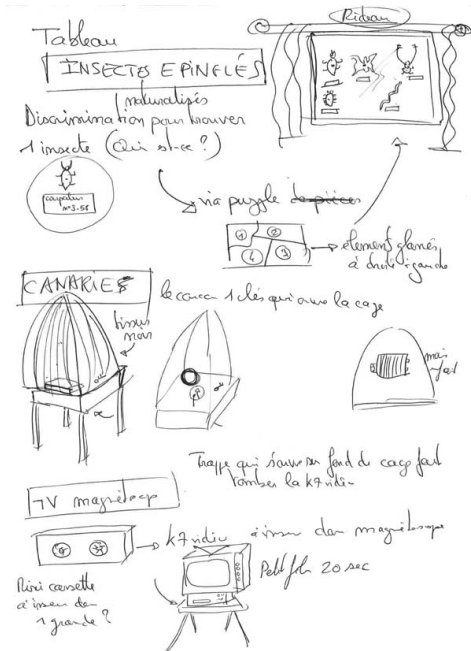 Tableau
Rideau
INSECTES EPINGLÉS
naturalisés
Discrimination pour trouver
1 insecte (Qui est-ce ?)
n°3-58
via puzzle de pièces
1 2
4 3
élément glanés
à droite à gauche
CANARIES
1 clés qui ouvre la cage
tissus
noir
Trappe qui s'ouvre au fond de cage fait
tomber la k7 vidéo
TV magnétoscop
k7 vidéo à insérer dan magnétoscope
Petit film 20 sec
Mini cassette
à insérer dan
1 grande ?